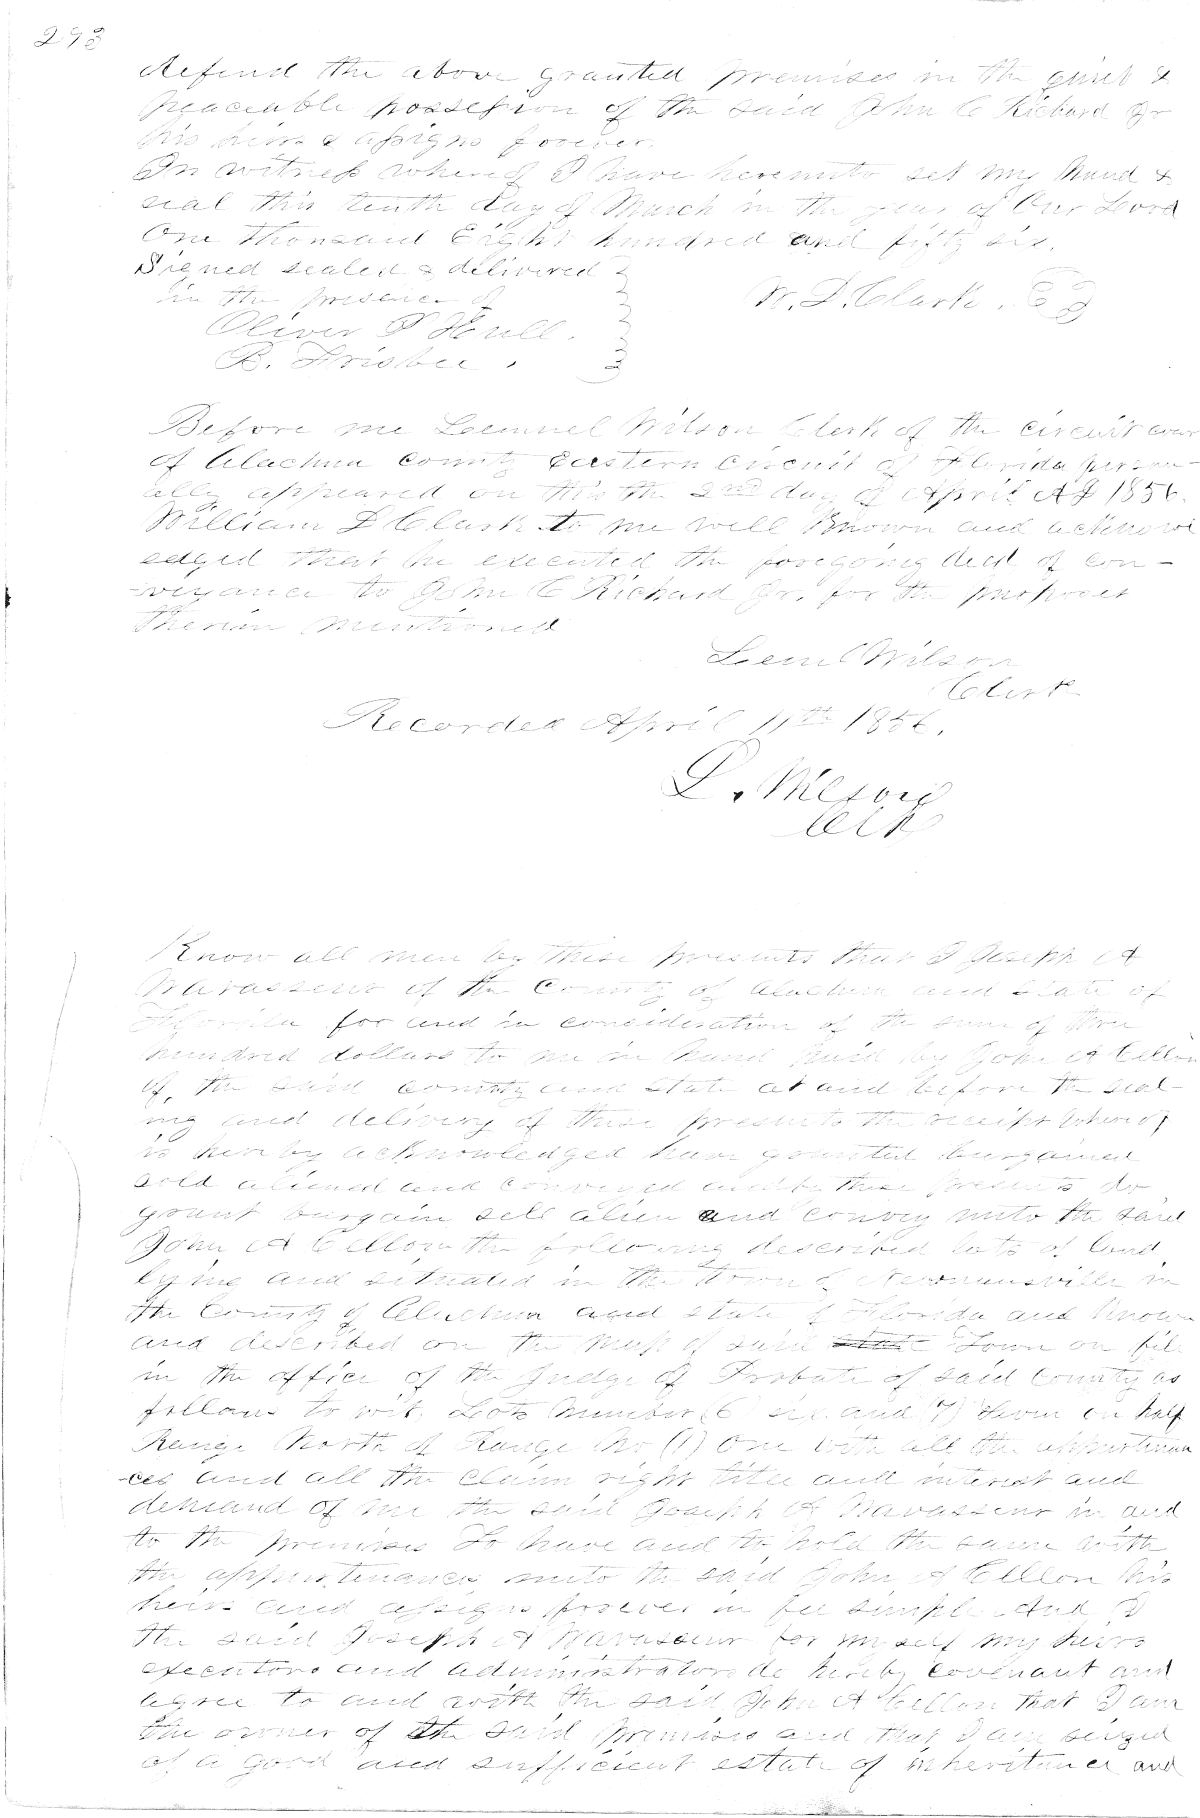 293
defend the above granted premises in the quiet &
peaceable possession of the said John C Richard Jr
his heirs & assigns forever.
In witness whereof I have hereunto set my hand &
seal this tenth day of March in the year of Our Lord
One thousand Eight hundred and fifty six.
Signed sealed & delivered
in the presence of
W. D. Clark.
Oliver P Hull.
B. Frisbee.
Before me Lemuel Wilson Clerk of the circuit cour
of Alachua county Eastern Circuit of Florida person-
ally appeared on this the 2nd day of April AD 1856.
William D Clark to me well Known and acknowl
edged that he executed the foregoing deed of con-
-veyance to John C Richard Jr. for the purposes
therein mentioned
Leml Wilson
Clerk
Recorded April 11th 1856.
L. Wilson
Clk
Know all men by these presents that I Joseph A
Navasseur of the County of Alachua and State of
Florida for and in consideration of the sum of three
hundred dollars to me in hand paid by John A Cellon
of, the said county and state at and before the seal-
ing and delivery of these presents the receipt whereof
is hereby acknowledged have granted bargained
sold aliened and conveyed and by these presents do
grant bargain sell alien and convey unto the said
John A Cellon the following described lots of land
lying and situated in the Town of Newnansville in
the County of Alachua and state of Florida and known
and described on the map of said Town on file
in the office of the Judge of Probate of said County as
follows to wit. Lots Number (6) six and (7) seven on half
Range North of Range No (1) One with all the appurtenan
-ces and all the claim right title and interest and
demand of me the said Joseph A Navasseur in and
to the premises To have and to hold the same with
the appurtenances unto the said John A Cellon his
heirs and assigns forever in fee simple And I
the said Joseph A Navasseur for myself my heirs
executors and administrators do hereby covenant and
agree to and with the said John A Cellon that I am
the owner of the said premises and that I am seized
of a good and sufficient estate of inheritance and